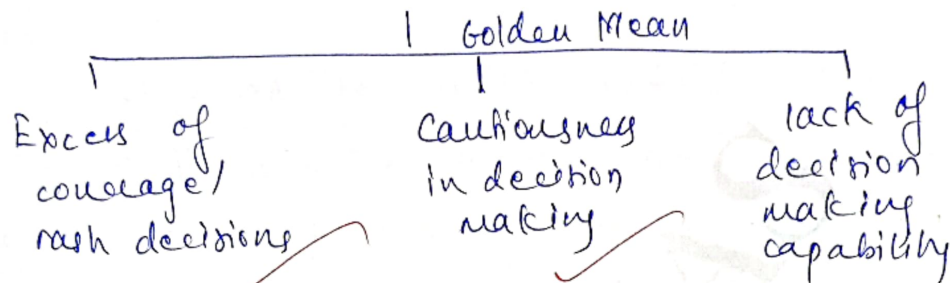 Golden Mean
Excess of
courage/
rash decisions
Cautiousness
in decision
making
lack of
decision
making
capability